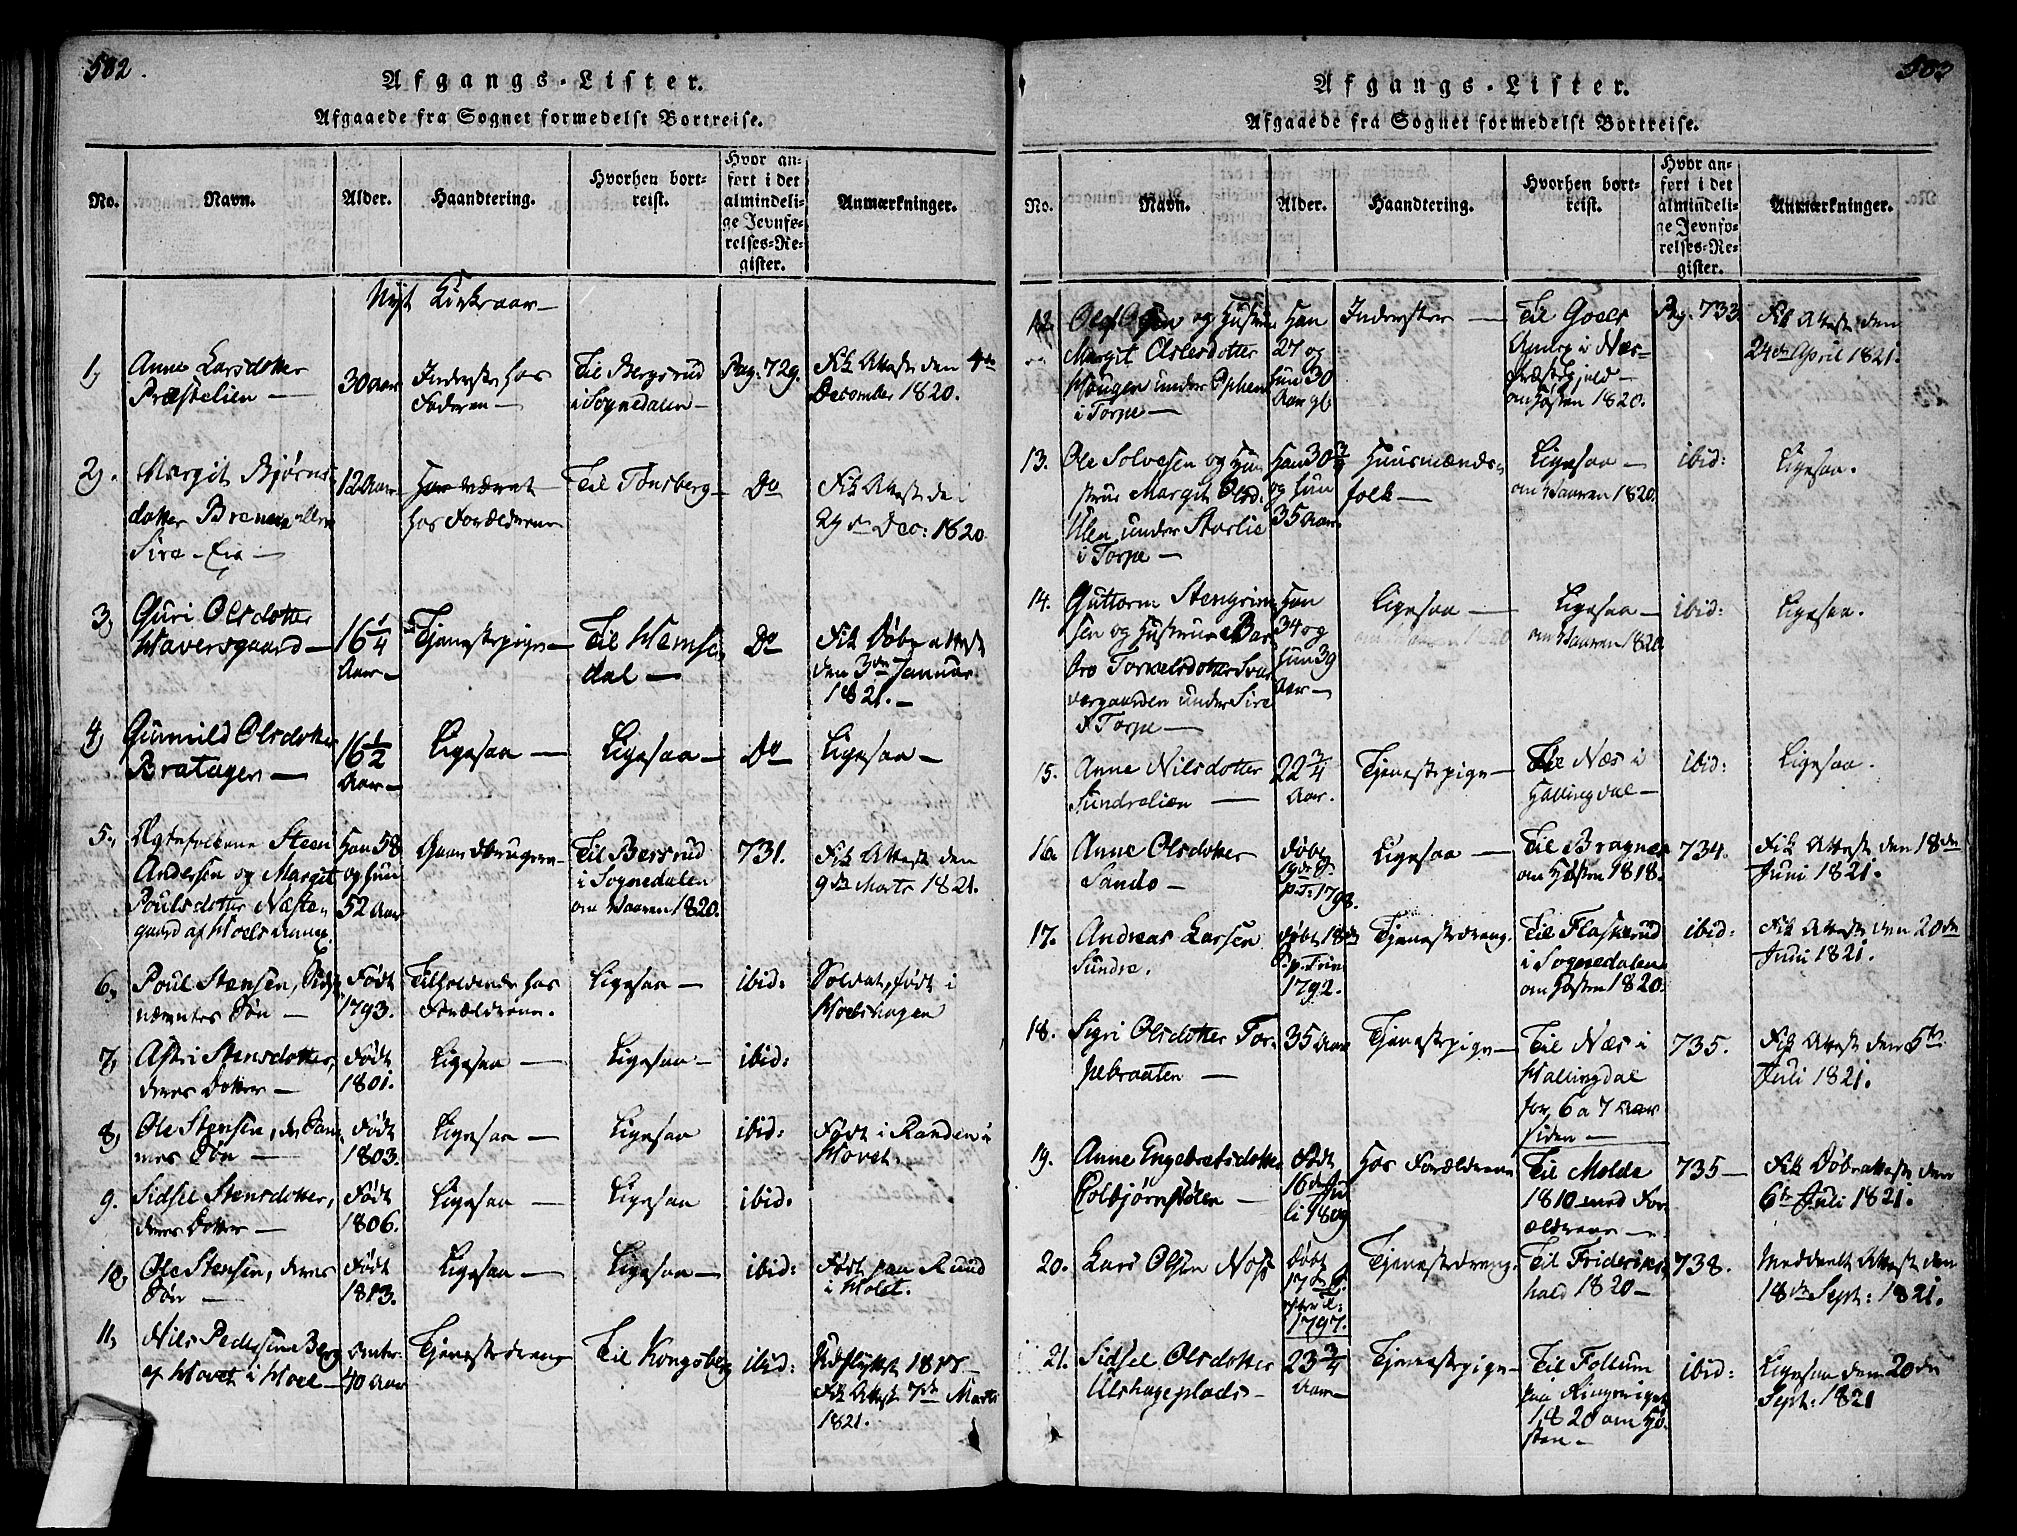 502.
Afgangs-Lister.
Afgaaede fra Sognet formedelst Bortreise.
No. Navn. Alder. Haandtering. Hvorhen bortreist. Hvor anført i det almindelige Jevnførelses-Register. Anmærkninger.
Nyt Kirkeaar —
1, Anne Larsdotter Præstelien — 30 Aar Inderste hos Faderen — Til Bergsrud i Sognedalen — Pag: 729. Fik Attest den 4de December 1820.
2, Margit Bjørnsdotter Brenna Sire-Eie — 12 Aar hos Forældrene Til Tønsberg — Do Fik Attest de 29de Dec: 1820.
3, Guri Olsdotter Haversgaard — 16 1/4 Aar — Tjenestepige — Til Hemsedal — Do Fik Døbeattest den 3de Januar 1821. —
4, Gunnild Olsdotter Bratagen — 16 1/2 Aar — Ligesaa — Ligesaa — Do Ligesaa —
5, Ægtefolkene Steen Andersen og Margit Poulsdotter Næstegaard af Hoels Han 58 og hun 52 Aar Gaardbrugere — Til Bersrud i Sognedalen om Vaaren 1820. 731. Fik Attest den 9de Marts 1821.
6, Poul Stensen, Søn — Født 1793. Tilholdende hos Forældrene. Ligesaa — ibid: Soldat, født i Hoelshagen
7, Astri Stensdotter, deres Dotter — Født 1801. Ligesaa — Ligesaa — ibid:
8, Ole Stensen, de Sammes Søn — Født 1803. Ligesaa — Ligesaa ibid: Født i Randen i Hovet.
9. Sidsel Stensdotter, deres Dotter — Født 1806. Ligesaa — Ligesaa ibid:
10, Ole Stensen, deres Søn — Født 1813. Ligesaa — Ligesaa — ibid: Født paa Ruud i Holet.
11, Nils Pedersen Berg af Hovet i Hoel — 40 Aar Tjenestedreng Til Kongsberg ibid: Udflyttet Fik Attest 7de Marts 1821.
503
Afgangs-Lister.
Afgaaede fra Sognet formedelst Bortreise.
No. Navn. Alder. Haandtering. Hvorhen bortreist. Hvor anført i det almindelige Jevnførelses-Register. Anmærkninger.
12. Ole Olsen og Hustru Margit Olslesdotter Haugen under Ophem i Torpe — Han 27 og hun 30 Aar gl. Inderster — Til Goels i Næs Præstegjeld — om Høsten 1820. Pag. 733 Fik Attest den 24de April 1821.
13. Ole Solvesen og Hustrue Margit Olsd: Ulen under Storlie i Torpe — Han 30 3/4 og hun 35 Aar Huusmændsfolk — Ligesaa — om Vaaren 1820. ibid: Ligesaa.
14. Guttorm Stengrimsen og Hustrue Barbro Torkelsdotter Svarvergaarden under Sire i Torpe — Han 34 og hun 39 Aar — Ligesaa — Ligesaa — om Vaaren 1820 ibid: Ligesaa.
15. Anne Nilsdotter Sundrelien — 22 3/4 Aar. Tjenestepige — Til Næs i Hallingdal — ibid: Ligesaa.
16. Anne Olsdotter Sando — Døbt p. T: 1798. Ligesaa — Til Bragnes om Høsten 1818. 734. Fik Attest den 18de Juni 1821.
17. Andreas Larsen Sundre. Døbt 18de S. p. Trin 1792. Tjenestedreng. Til Flaskerud i Sognedalen om Høsten 1820. ibid: Fik Attest den 20de Juni 1821.
18. Sigri Olsdotter Torpebraaten — 35 Aar Tjenestepige — Til Næs i Hallingdal for 6 a 7 Aar siden — 735. Fik Attest den 5te Juli 1821.
19. Anne Engebretsdotter Colbjørnstølen — Født 16de Juli 1809. Hos Forældrene Til Molde 1810 med Forældrene — 735 — Fik Døbeattest den 6te Juli 1821.
20. Lars Olsen Noss Døbt 17de S. efter T: 1797. Tjenestedreng. Til Friderikshald 1820 — 738. Meddeelt Attest den 18de Sept: 1821.
21. Sidsel Olsdotter Ulshageplads — 23 3/4 Aar — Tjenestepige — Til Follum paa Ringerige 1820 om Høsten — ibid: Ligesaa den 20de Sept: 1821